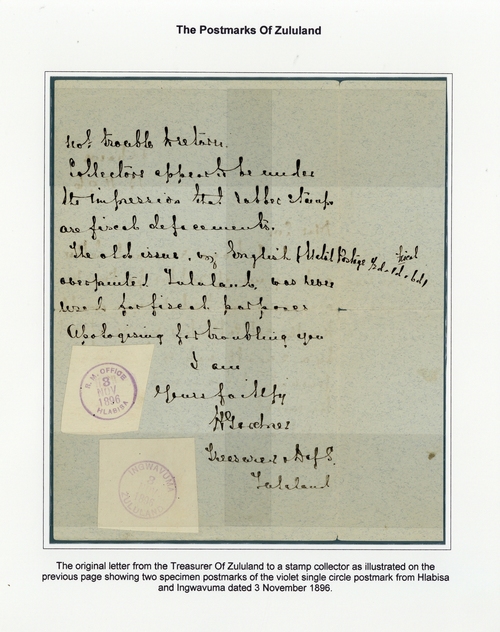 The Postmarks Of Zululand
not trouble to return.
Collectors appear to be under
the impression that rubber stamps
are fiscal defacements.
The old issue, viz English & Natal Postage
overprinted Zululand, was never
used for fiscal purposes
Apologising for troubling you
I am
Yours faithfy
Treasurer
Zululand
R. M. OFFICE
3
NOV
1896
HLABISA
INGWAVUMA
ZULULAND
The original letter from the Treasurer Of Zululand to a stamp collector as illustrated on the
previous page showing two specimen postmarks of the violet single circle postmark from Hlabisa
and Ingwavuma dated 3 November 1896.